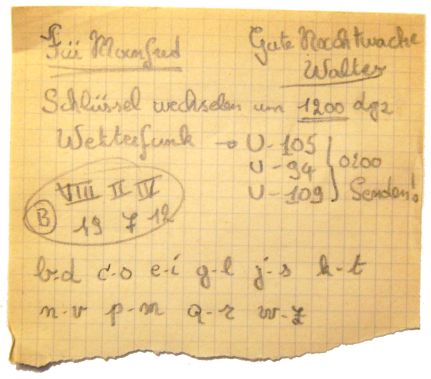 Für Manfred
Gute Nachtwache
Walter
Schlüssel wechseln um 1200 dgz
Wetterfunk → U-105
U-94
U-109
0200
Senden!
B
VIII II IV
19 7 12
b-d c-o e-i g-l j-s k-t
n-v p-m q-r w-z